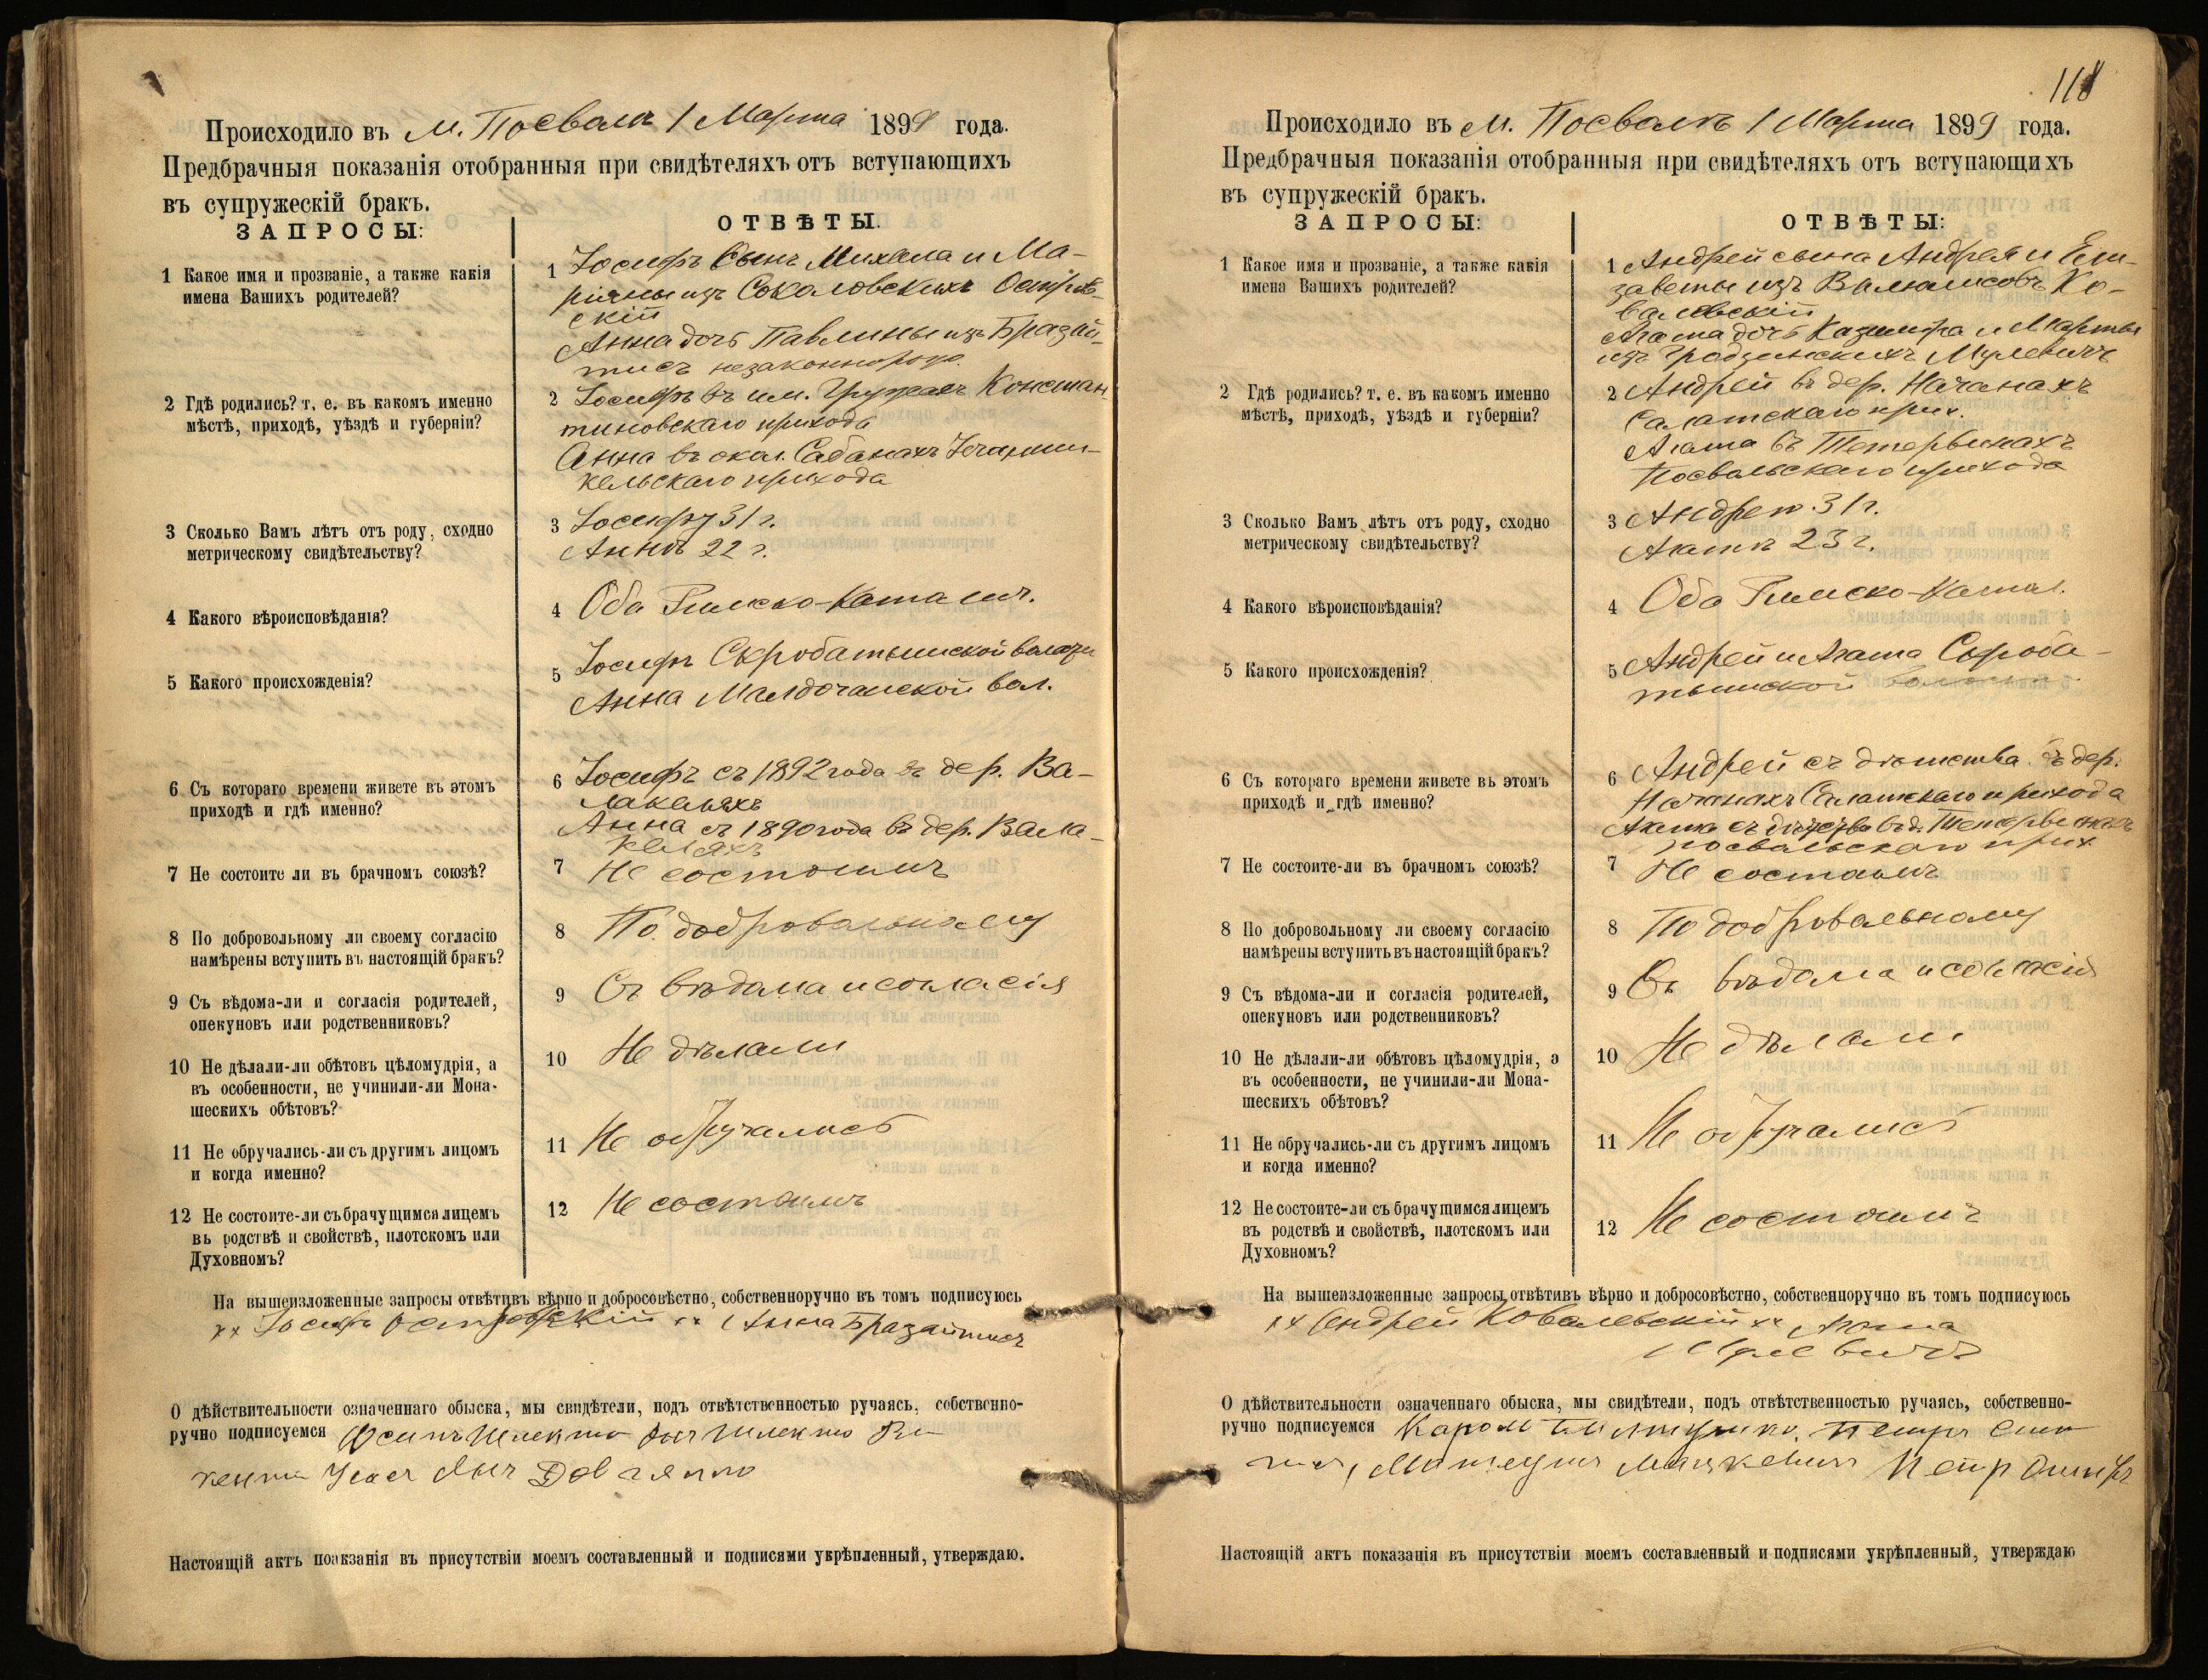 Происходило въ м. Посвалѣ 1 Марта 1899 года.
Предбрачныя показанія отобранныя при свидѣтеляхъ отъ вступающихъ
въ супружескій бракъ.
ЗАПРОСЫ:
ОТВѢТЫ.
1 Какое имя и прозваніе, а также какія
имена Вашихъ родителей?
1 Іосифъ сынъ Михала и Ма-
ріяны изъ Соколовскихъ Островс-
скій
Анна дочь Павлины изъ Бразай-
тисъ незаконнорож.
2 Гдѣ родились? т. е. въ какомъ именно
мѣстѣ, приходѣ, уѣздѣ и губерніи?
2 Іосифъ въ им. Гружахъ Констан-
тиновскаго прихода
Анна въ окол. Сабанахъ
кельскаго прихода
3 Сколько Вамъ лѣтъ отъ роду, сходно
метрическому свидѣтельству?
3 Іосифу 31 г.
Аннѣ 22 г.
4 Какого вѣроисповѣданія?
4 Оба Римско-Католич.
5 Какого происхожденія?
5 Іосифъ Скробатышской волости
Анна Малдочанской вол.
6 Съ котораго времени живете въ этомъ
приходѣ и гдѣ именно?
6 Іосифъ съ 1892 года въ дер. Ва-
лакеляхъ
Анна съ 1890 года въ дер. Вала-
келяхъ
7 Не состоите ли въ брачномъ союзѣ?
7 Не состоимъ
8 По добровольному ли своему согласію
намѣрены вступить въ настоящій бракъ?
8 По добровольному
9 Съ вѣдома-ли и согласія родителей,
опекуновъ или родственниковъ?
9 Съ вѣдома и согласія
10 Не дѣлали-ли обѣтовъ цѣломудрія, а
въ особенности, не учинили-ли Мона-
шескихъ обѣтовъ?
10 Не дѣлали
11 Не обручались-ли съ другимъ лицомъ
и когда именно?
11 Не обручались
12 Не состоите-ли съ брачущимся лицемъ
въ родствѣ и свойствѣ, плотскомъ или
Духовномъ?
12 Не состоимъ
На вышеизложенные запросы отвѣтивъ вѣрно и добросовѣстно, собственноручно въ томъ подписуюсь
хх Іосифъ Островскій хх Анна Бразайтисъ
О дѣйствительности означеннаго обыска, мы свидѣтели, подъ отвѣтственностью ручаясь, собственно-
ручно подписуемся Осипъ
Довгялло
Настоящій актъ поакзанія въ присутствіи моемъ составленный и подписями укрѣпленный, утверждаю.
118
Происходило въ м. Посвалѣ 1 Марта 1899 года.
Предбрачныя показанія отобранныя при свидѣтеляхъ отъ вступающихъ
въ супружескій бракъ.
ЗАПРОСЫ:
ОТВѢТЫ:
1 Какое имя и прозваніе, а также какія
имена Вашихъ родителей?
1 Андрей сына Андрея и Ели-
заветы изъ Валюлисовъ Ко-
валевскій
Агата дочь Казимира и Марты
изъ Гродзинскихъ Мулевичъ
2 Гдѣ родились? т. е. въ какомъ именно
мѣстѣ, приходѣ, уѣздѣ и губерніи?
2 Андрей въ дер. Начанахъ
Салатскаго прих.
Агата въ Тетервинахъ
Посвальскаго прихода
3 Сколько Вамъ лѣтъ отъ роду, сходно
метрическому свидѣтельству?
3 Андрею 31 г.
Агатѣ 23 г.
4 Какого вѣроисповѣданія?
4 Оба Римско-Катол.
5 Какого происхожденія?
5 Андрей и Агата Скроба-
тышской волости
6 Съ котораго времени живете въ этомъ
приходѣ и гдѣ именно?
6 Андрей съ дѣтства въ дер.
Начанахъ Салатскаго прихода
Агата съ дѣтства въ д. Тетервинахъ
посвальскаго прих
7 Не состоите-ли въ брачномъ союзѣ?
7 Не состоимъ
8 По добровольному ли своему согласію
намѣрены вступить въ настоящій бракъ?
8 По добровольному
9 Съ вѣдома-ли и согласія родителей,
опекуновъ или родственниковъ?
9 Съ вѣдома и согласія
10 Не дѣлали-ли обѣтовъ цѣломудрія, а
въ особенности, не учинили-ли Мона-
шескихъ обѣтовъ?
10 Не дѣлали
11 Не обручались-ли съ другимъ лицомъ
и когда именно?
11 Не обручались
12 Не состоите-ли съ брачущимся лицемъ
въ родствѣ и свойствѣ, плотскомъ или
Духовномъ?
12 Не состоимъ
На вышеизложенные запросы отвѣтивъ вѣрно и добросовѣстно, собственноручно въ томъ подписуюсь
хх Андрей Ковалевскій хх Агата
Мулевичъ
О дѣйствительности означеннаго обыска, мы свидѣтели, подъ отвѣтственностью ручаясь, собственно-
ручно подписуемся Кароль Петръ
Мацкевичъ Петръ
Настоящій актъ показанія въ присутствіи моемъ составленный и подписями укрѣпленный, утверждаю